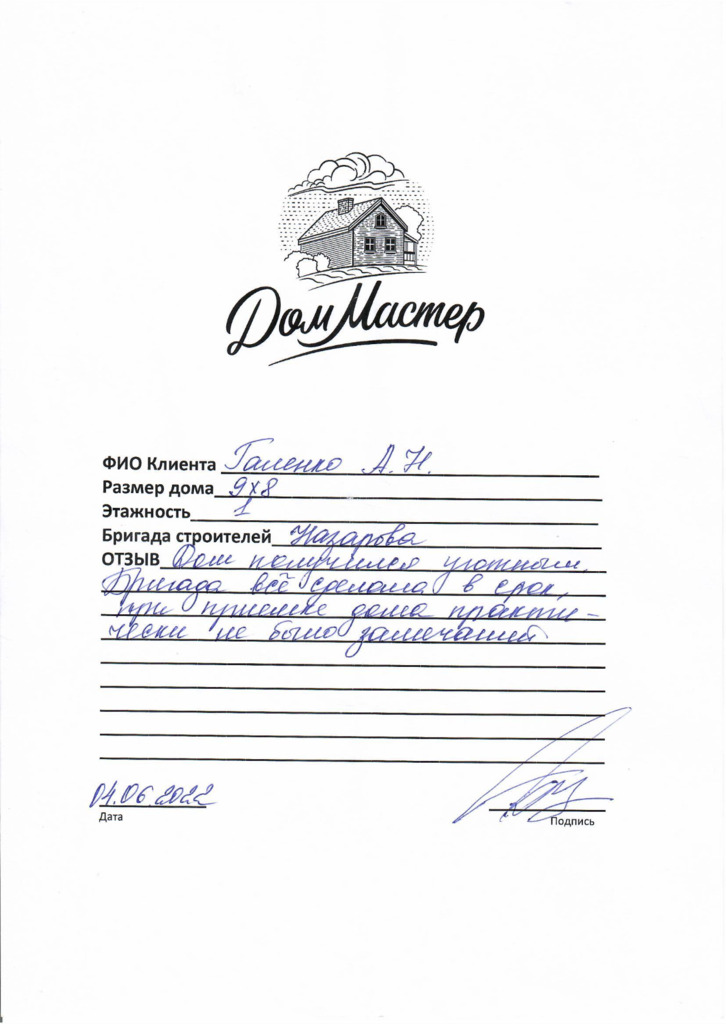 Дом Мастер
ФИО Клиента Галенко А.Н.
Размер дома 9х8
Этажность 1
Бригада строителей Назарова
ОТЗЫВ Дом получился уютным.
Бригада всё сделала в срок,
при приемке дома практи-
чески не было замечаний
04.06.2022
Дата
Подпись